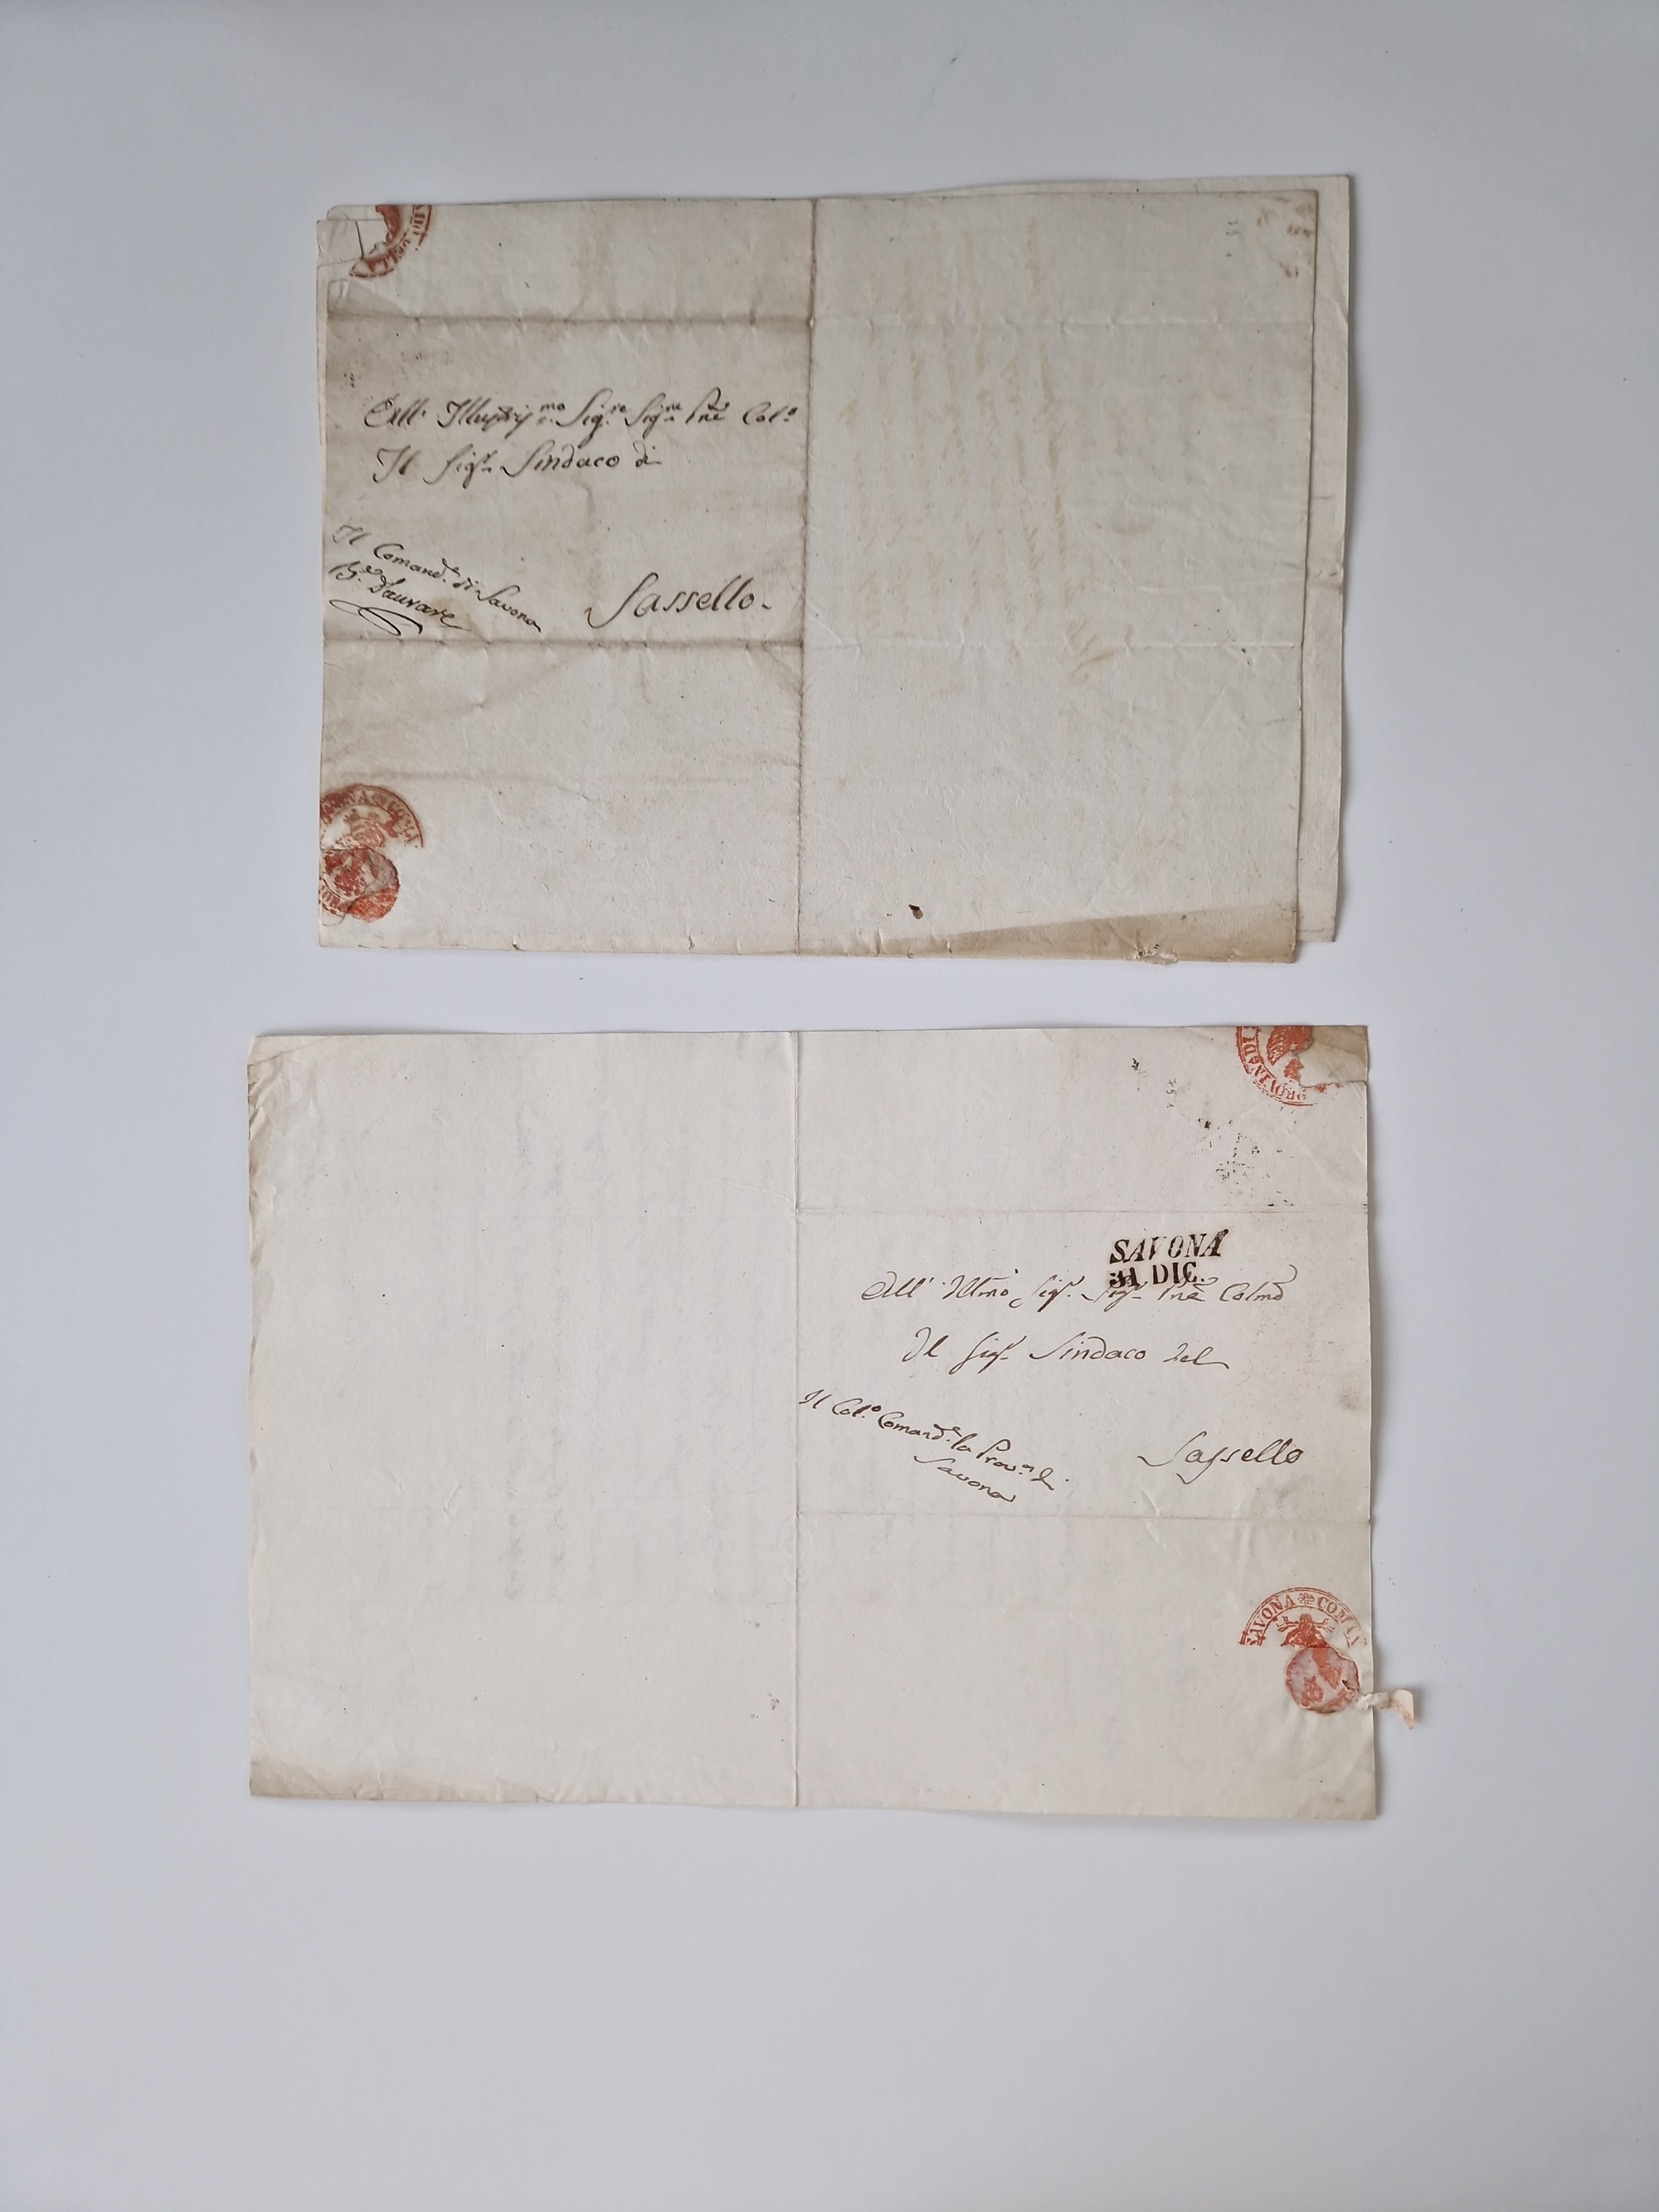 All' Illustriss.mo Sig.re Sig.re P.ne Col.o
Il Sig.r Sindaco di
Il Comand.te di Savona
B.ne
Sassello.
SAVONA COMA
SAVONA
31 DIC.
All' Ill.mo Sig.r Sig.r P.ne Col.mo
Il Sig.r Sindaco del
Il Col.o Comand.te la Prov.a di
Savona
Sassello
SAVONA COMAN
PROVIN DI